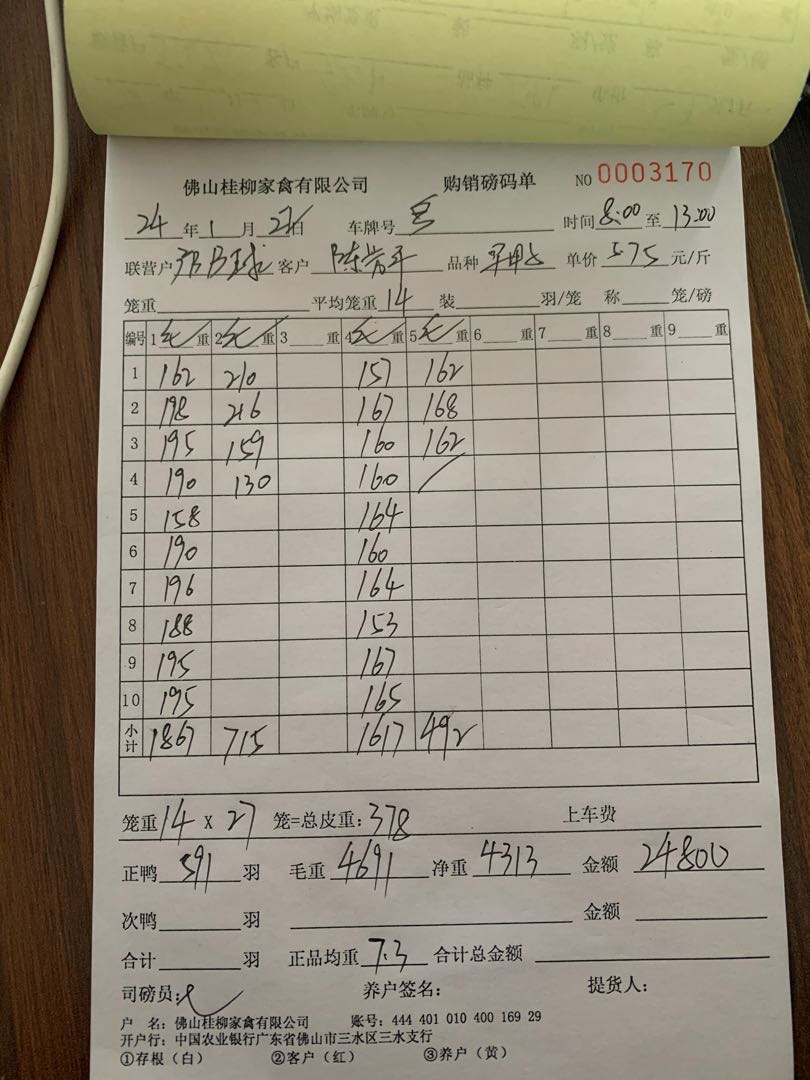 佛山桂柳家禽有限公司 购销磅码单 NO 0003170
24 年 1 月 27 日 车牌号 时间 8:00 至 13:00
联营户 客户 陈劳平 品种 单价 5.75 元/斤
笼重 平均笼重 14 装 羽/笼 称 笼/磅
编号 1 毛 重 2 毛 重 3 重 4 毛 重 5 毛 重 6 重 7 重 8 重 9 重
1 162 210 157 162
2 198 216 167 168
3 195 159 160 162
4 190 130 160
5 158 164
6 190 160
7 196 164
8 188 153
9 195 167
10 195 165
小计 1867 715 1617 492
笼重 14 X 27 笼=总皮重: 378 上车费
正鸭 591 羽 毛重 4691 净重 4313 金额 24800
次鸭 羽 金额
合计 羽 正品均重 7.3 合计总金额
司磅员: 养户签名: 提货人:
户 名: 佛山桂柳家禽有限公司 账号: 444 401 010 400 169 29
开户行: 中国农业银行广东省佛山市三水区三水支行
①存根（白） ②客户（红） ③养户（黄）